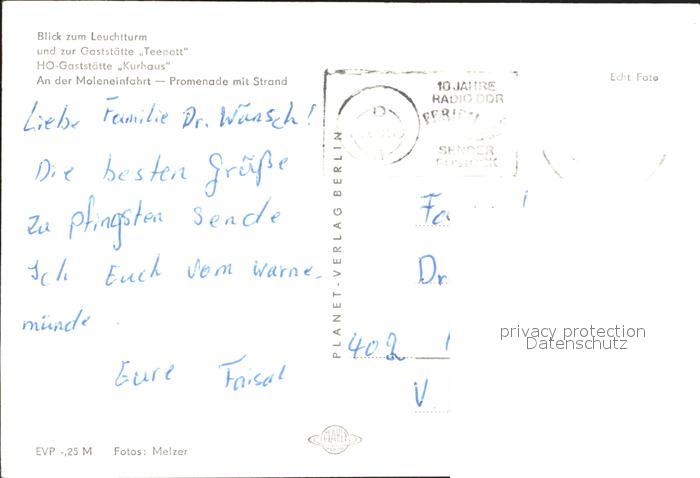 Blick zum Leuchtturm
und zur Gaststätte „Teepott"
HO-Gaststätte „Kurhaus"
An der Moleneinfahrt — Promenade mit Strand
Echt Foto
10 JAHRE
RADIO DDR
SENDER
Liebe Familie Dr. Wünsch!
Die besten Grüße
zu pfingsten sende
Ich Euch vom Warne-
münde.
Eure Faisal
PLANET-VERLAG BERLIN
Fa
Dr.
402
V
privacy protection
Datenschutz
EVP -,25 M Fotos: Melzer